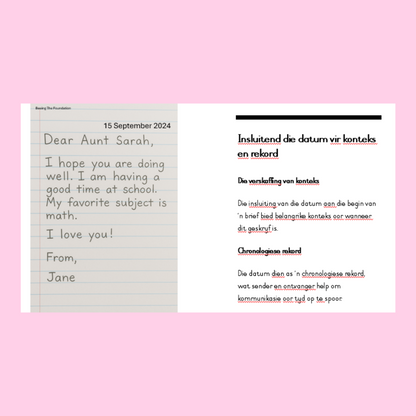 Blazing The Foundation
15 September 2024
Dear Aunt Sarah,
I hope you are doing
well. I am having a
good time at school.
My favorite subject is
math.
I love you!
From,
Jane
Insluitend die datum vir konteks
en rekord
Die verskaffing van konteks
Die insluiting van die datum aan die begin van
'n brief bied belangrike konteks oor wanneer
dit geskryf is.
Chronologiese rekord
Die datum dien as 'n chronologiese rekord,
wat sender en ontvanger help om
kommunikasie oor tyd op te spoor.